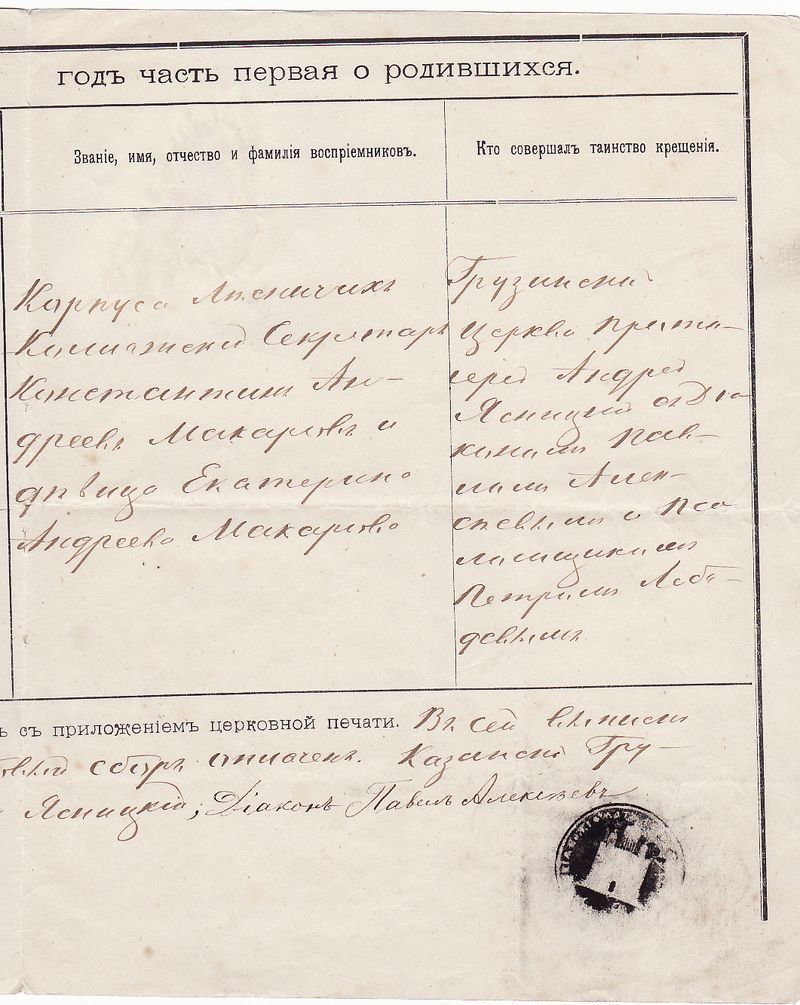 годъ часть первая о родившихся.
Званіе, имя, отчество и фамилія воспріемниковъ.
Кто совершалъ таинство крещенія.
Корпуса Лѣсничихъ
Секретарь
Константинъ Ан-
дреевъ Макаровъ и
дѣвица Екатерина
Андреева Макарова
Грузинской
Церкви Прото-
іерей Андрей
Ясницкій съ Діа-
кономъ Пав-
ломъ Алек-
сѣевымъ и Пса
ломщикомъ
Петромъ Лебе-
девымъ
ь съ приложеніемъ церковной печати. Въ сей выписи
сборъ оплаченъ. Казанской Гру-
Ясницкій; Діаконъ Павелъ Алексѣевъ